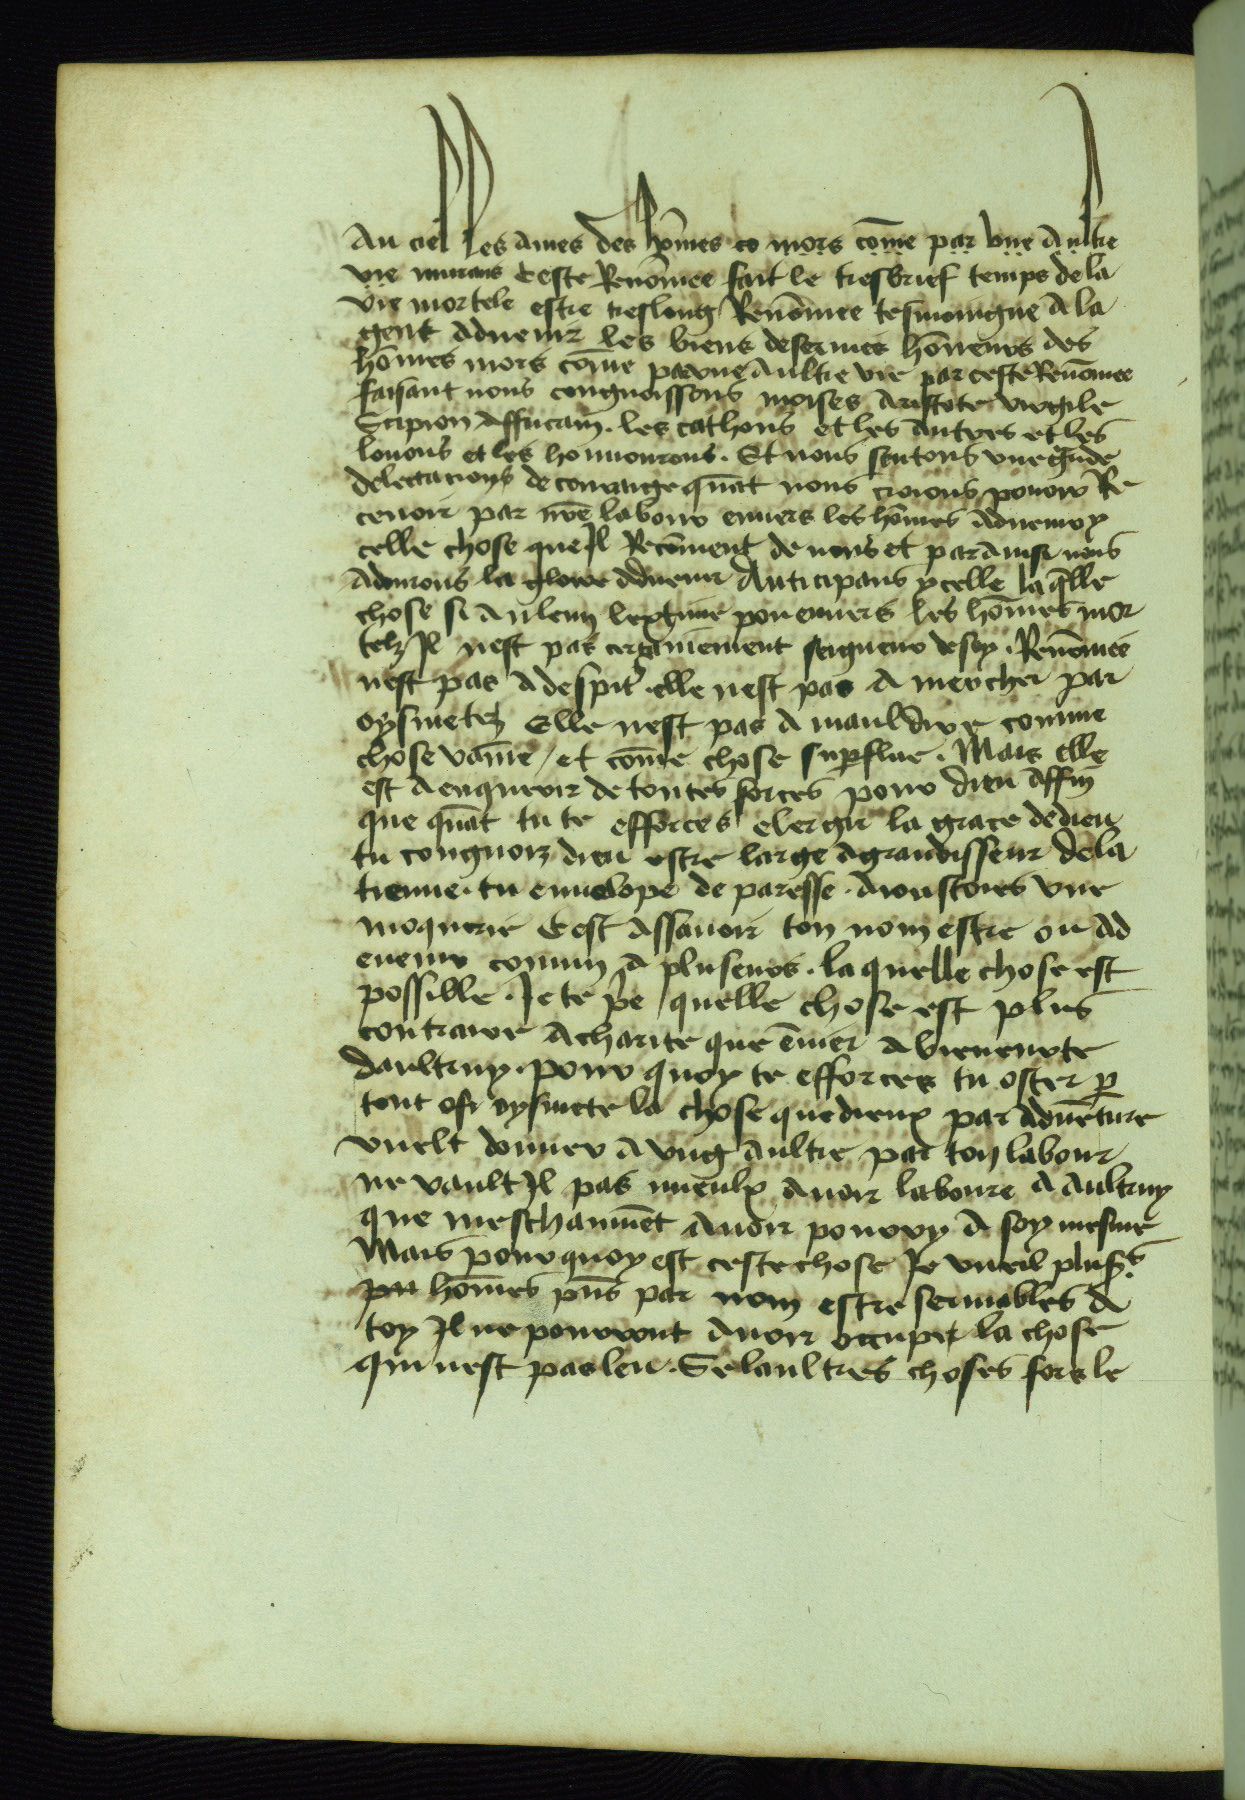 Au ciel les ames des hõmes co mors cõme par vne Aultre
vie viuans Ceste Renõmee fait le tresbrief temps de la
vie mortele estre treslong Renõmee tesmoingne A la
gent Aduenir les biens deseruies hõneurs des
hõmes mors cõme par vne Aultre vie par ceste Renõmee
faisant nous congnoissons moises Aristote virgile
Scipion Affricain . les cathons et les Autres et les
louons et les honnourons . Et nous sentons vne grãde
delectacions de couraige quãt nous croions pouoir Re
ceuoir par nr̃e labour enuers les hõmes Aduenir
celle chose que Il de nous et par Ainsi nous
Adourons la gloire Aduenir Anticipans ycelle la q̃lle
chose si Aulcun pou enuers les hõmes mor
telz Il nest pas certainement seigneur de soy . Renõmee
nest pas A despit . elle nest pas A par
oysiuetez Elle nest pas A mauldire comme
chose vaine / et cõme chose supflue . Mais elle
est A enquerir de toutes forces pour dieu Affin
que quãt tu te efforces eslergir la grace de dieu
tu congnois dieu estre large Agrandisseur de la
tienne . tu enuelope de paresse . Adioustoies vne
moquerie Cest Assauoir ton nom estre ou Ad
euenir comun A pluseurs . la quelle chose est
possible . Je te p̃e quelle chose est plus
contraire A charite que ẽuier A bieneurte
daultruy . pour quoy te efforces tu oster p̱
tout oysiuete la chose que dieux par Aduẽture
vuelt donner A vng Aultre par ton labour
ne vault Il pas mieulx Auoir laboure A Aultruy
que meschamẽt Auoir pourry A soy mesme
Mais pourquoy est ceste chose Je vueil plus̃s
hõmes pñs par nom estre semiables A
toy Il ne pourront Auoir occuper la chose
qui nest pas leu . Se laultres choses fors le